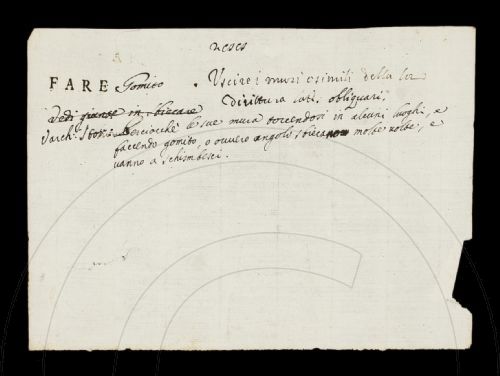 FARE Gomito. Uscire i muri e simili della lor
dirittura lat. obliquari.
Vedi in biecare
Varch. Stor. Perciocchè le sue mura torcendosi in alcuni luoghi, e
facendo gomito, o ovvero angolo, sbiecano molte volte, e
vanno a schimbesci.